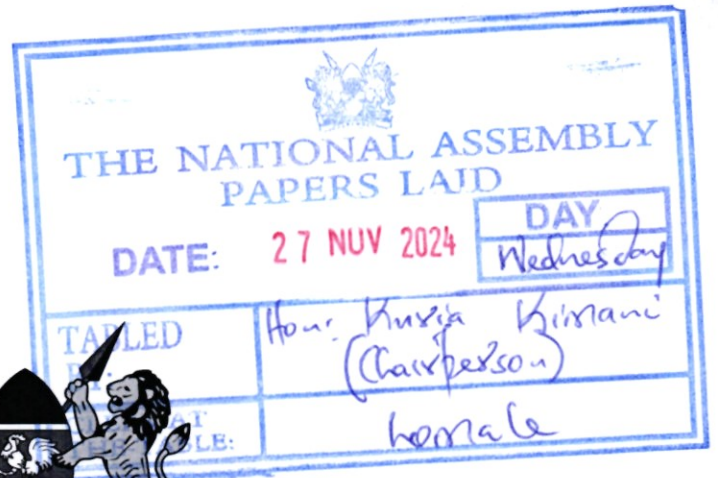 THE NATIONAL ASSEMBLY
PAPERS LAID
DATE: 27 NOV 2024
DAY
Wednesday
TABLED
Hon. Kuria Kimani
(Chairperson)